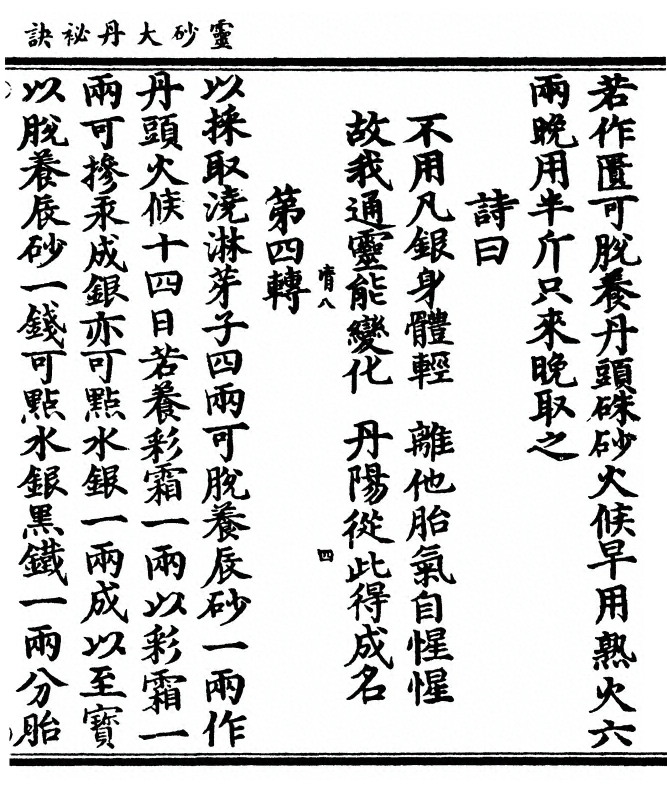 靈砂大丹祕訣
若作匱可脫養丹頭硃砂火候早用熟火六
兩晚用半斤只來晚取之
詩曰
不用凡銀身體輕　離他胎氣自惺惺
故我通靈能變化　丹陽從此得成名
甯八　四
第四轉
以採取澆淋芽子四兩可脫養辰砂一兩作
丹頭火候十四日若養彩霜一兩以彩霜一
兩可摻汞成銀亦可點水銀一兩成以至寶
以脫養辰砂一錢可點水銀黑鐵一兩分胎